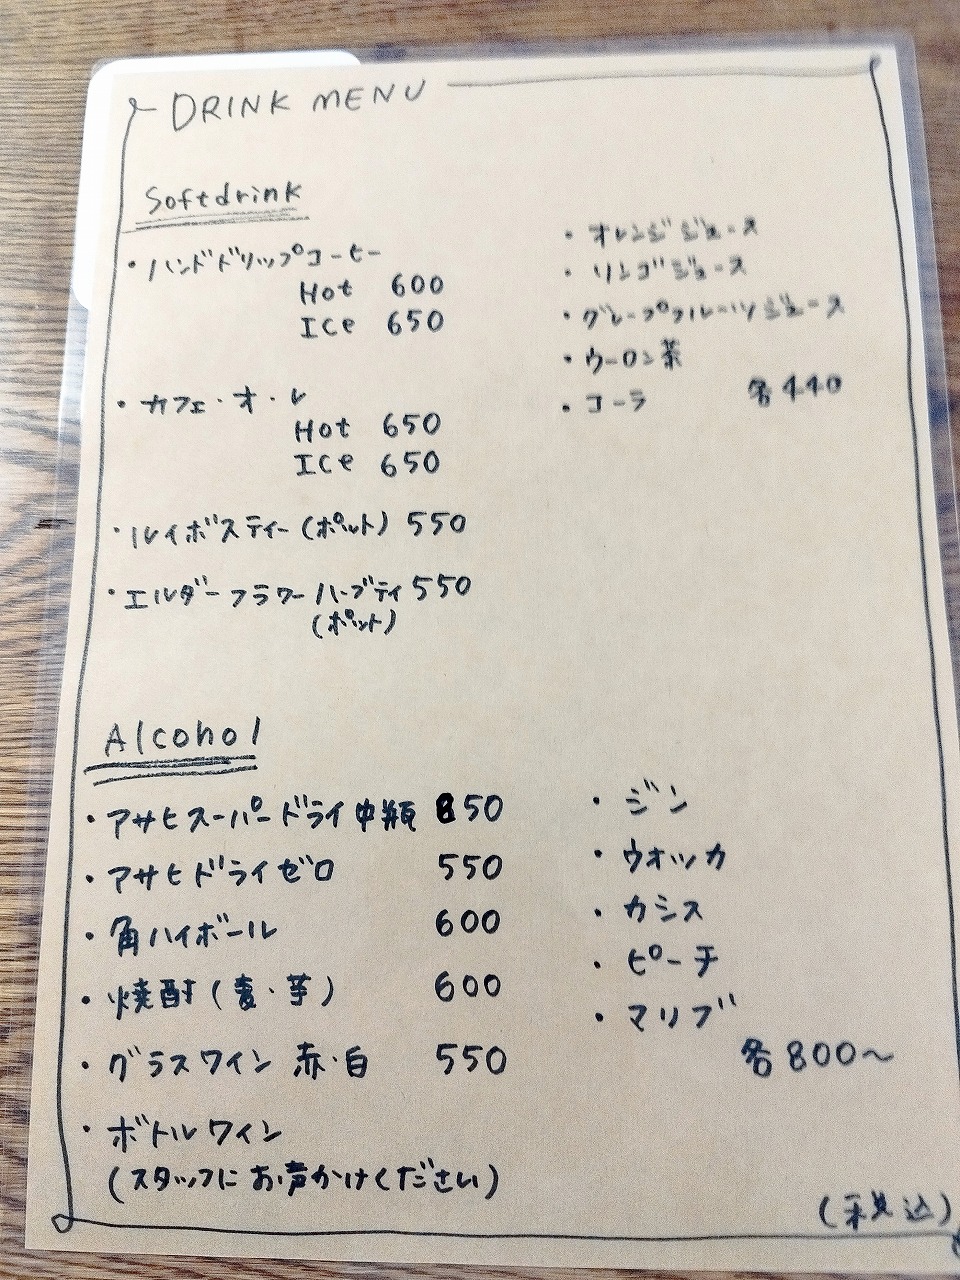 DRINK MENU
Softdrink
・ハンドドリップコーヒー
Hot 600
Ice 650
・カフェ・オ・レ
Hot 650
Ice 650
・ルイボスティー(ポット) 550
・エルダーフラワーハーブティ 550
(ポット)
・オレンジジュース
・リンゴジュース
・グレープフルーツジュース
・ウーロン茶
・コーラ 各440
Alcohol
・アサヒスーパードライ中瓶 850
・アサヒドライゼロ 550
・角ハイボール 600
・焼酎(麦・芋) 600
・グラスワイン 赤・白 550
・ボトルワイン
(スタッフにお声かけください)
・ジン
・ウオッカ
・カシス
・ピーチ
・マリブ
各800〜
(税込)